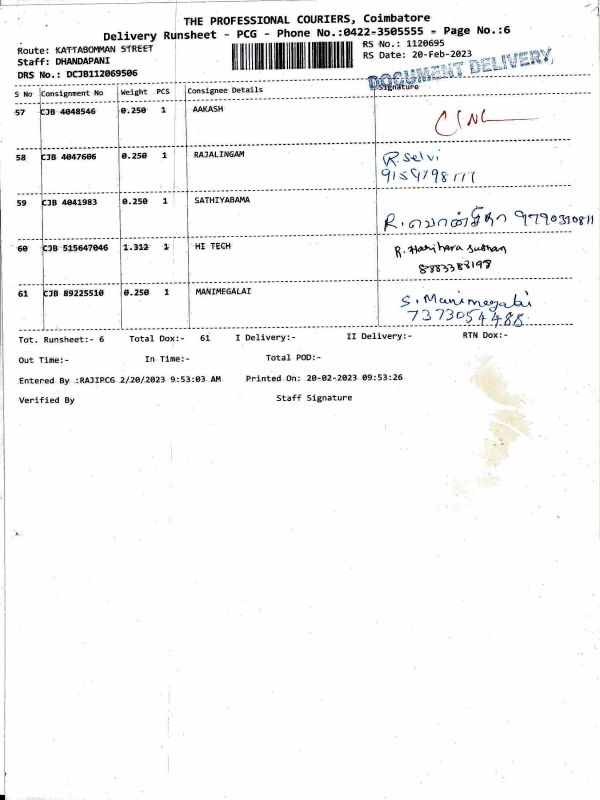 THE PROFESSIONAL COURIERS, Coimbatore
Delivery Runsheet - PCG - Phone No.:0422-3505555 - Page No.:6
Route: KATTABOMMAN STREET
RS No.: 1120695
Staff: DHANDAPANI
RS Date: 20-Feb-2023
DRS No.: DCJB112069506
DOCUMENT DELIVERY
S No Consignment No Weight PCS Consignee Details Signature
57 CJB 4048546 0.250 1 AAKASH
58 CJB 4047606 0.250 1 RAJALINGAM R. Selvi
59 CJB 4041983 0.250 1 SATHIYABAMA
R. 9790310811
60 CJB 515647046 1.312 1 HI TECH R. Harihara sudhan
8883388198
61 CJB 89225510 0.250 1 MANIMEGALAI S. Manimegalai
7373054488
Tot. Runsheet:- 6 Total Dox:- 61 I Delivery:- II Delivery:- RTN Dox:-
Out Time:- In Time:- Total POD:-
Entered By :RAJIPCG 2/20/2023 9:53:03 AM Printed On: 20-02-2023 09:53:26
Verified By Staff Signature